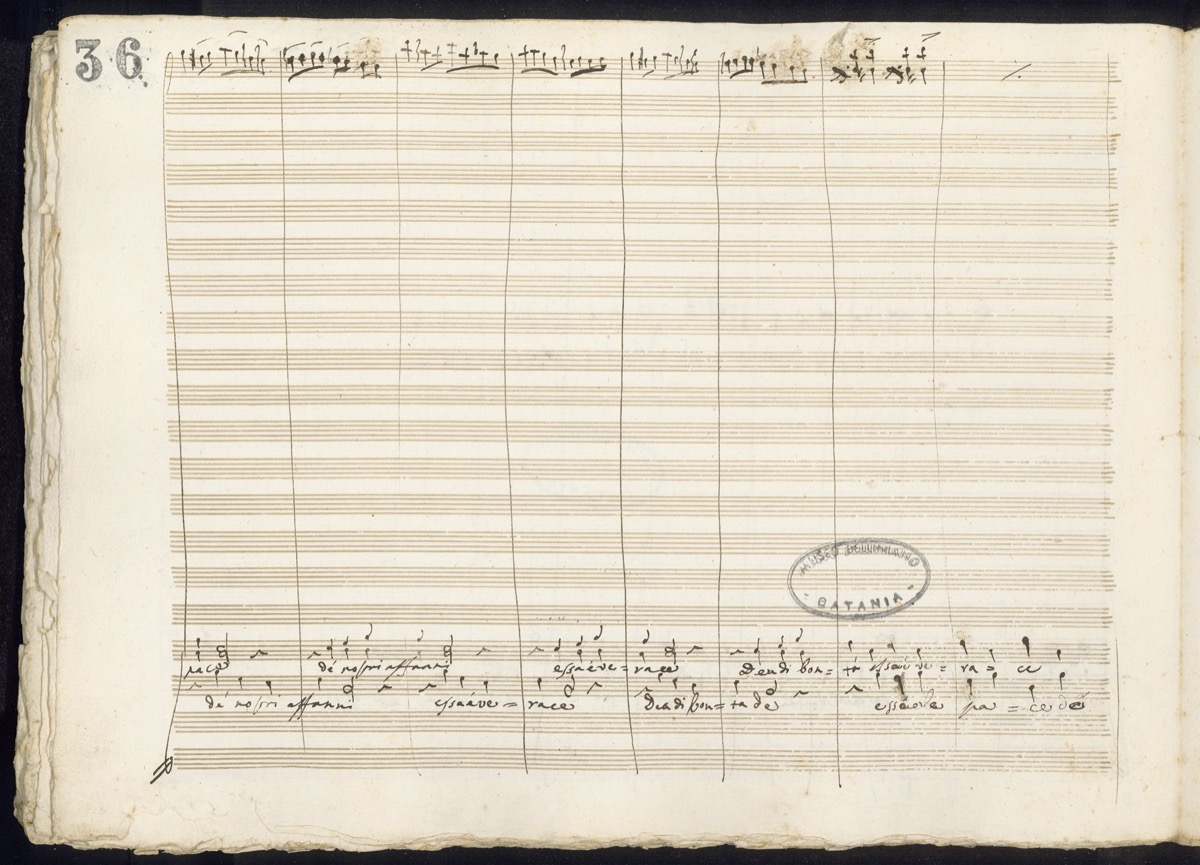 36
MUSEO BELLINIANO
- CATANIA -
pace de nostri affanni essa é ve = race Dea di bon = tà essa é ve = ra = ce
de nostri affanni essa é ve = race Dea di bon = tade essa é la pa = ce de